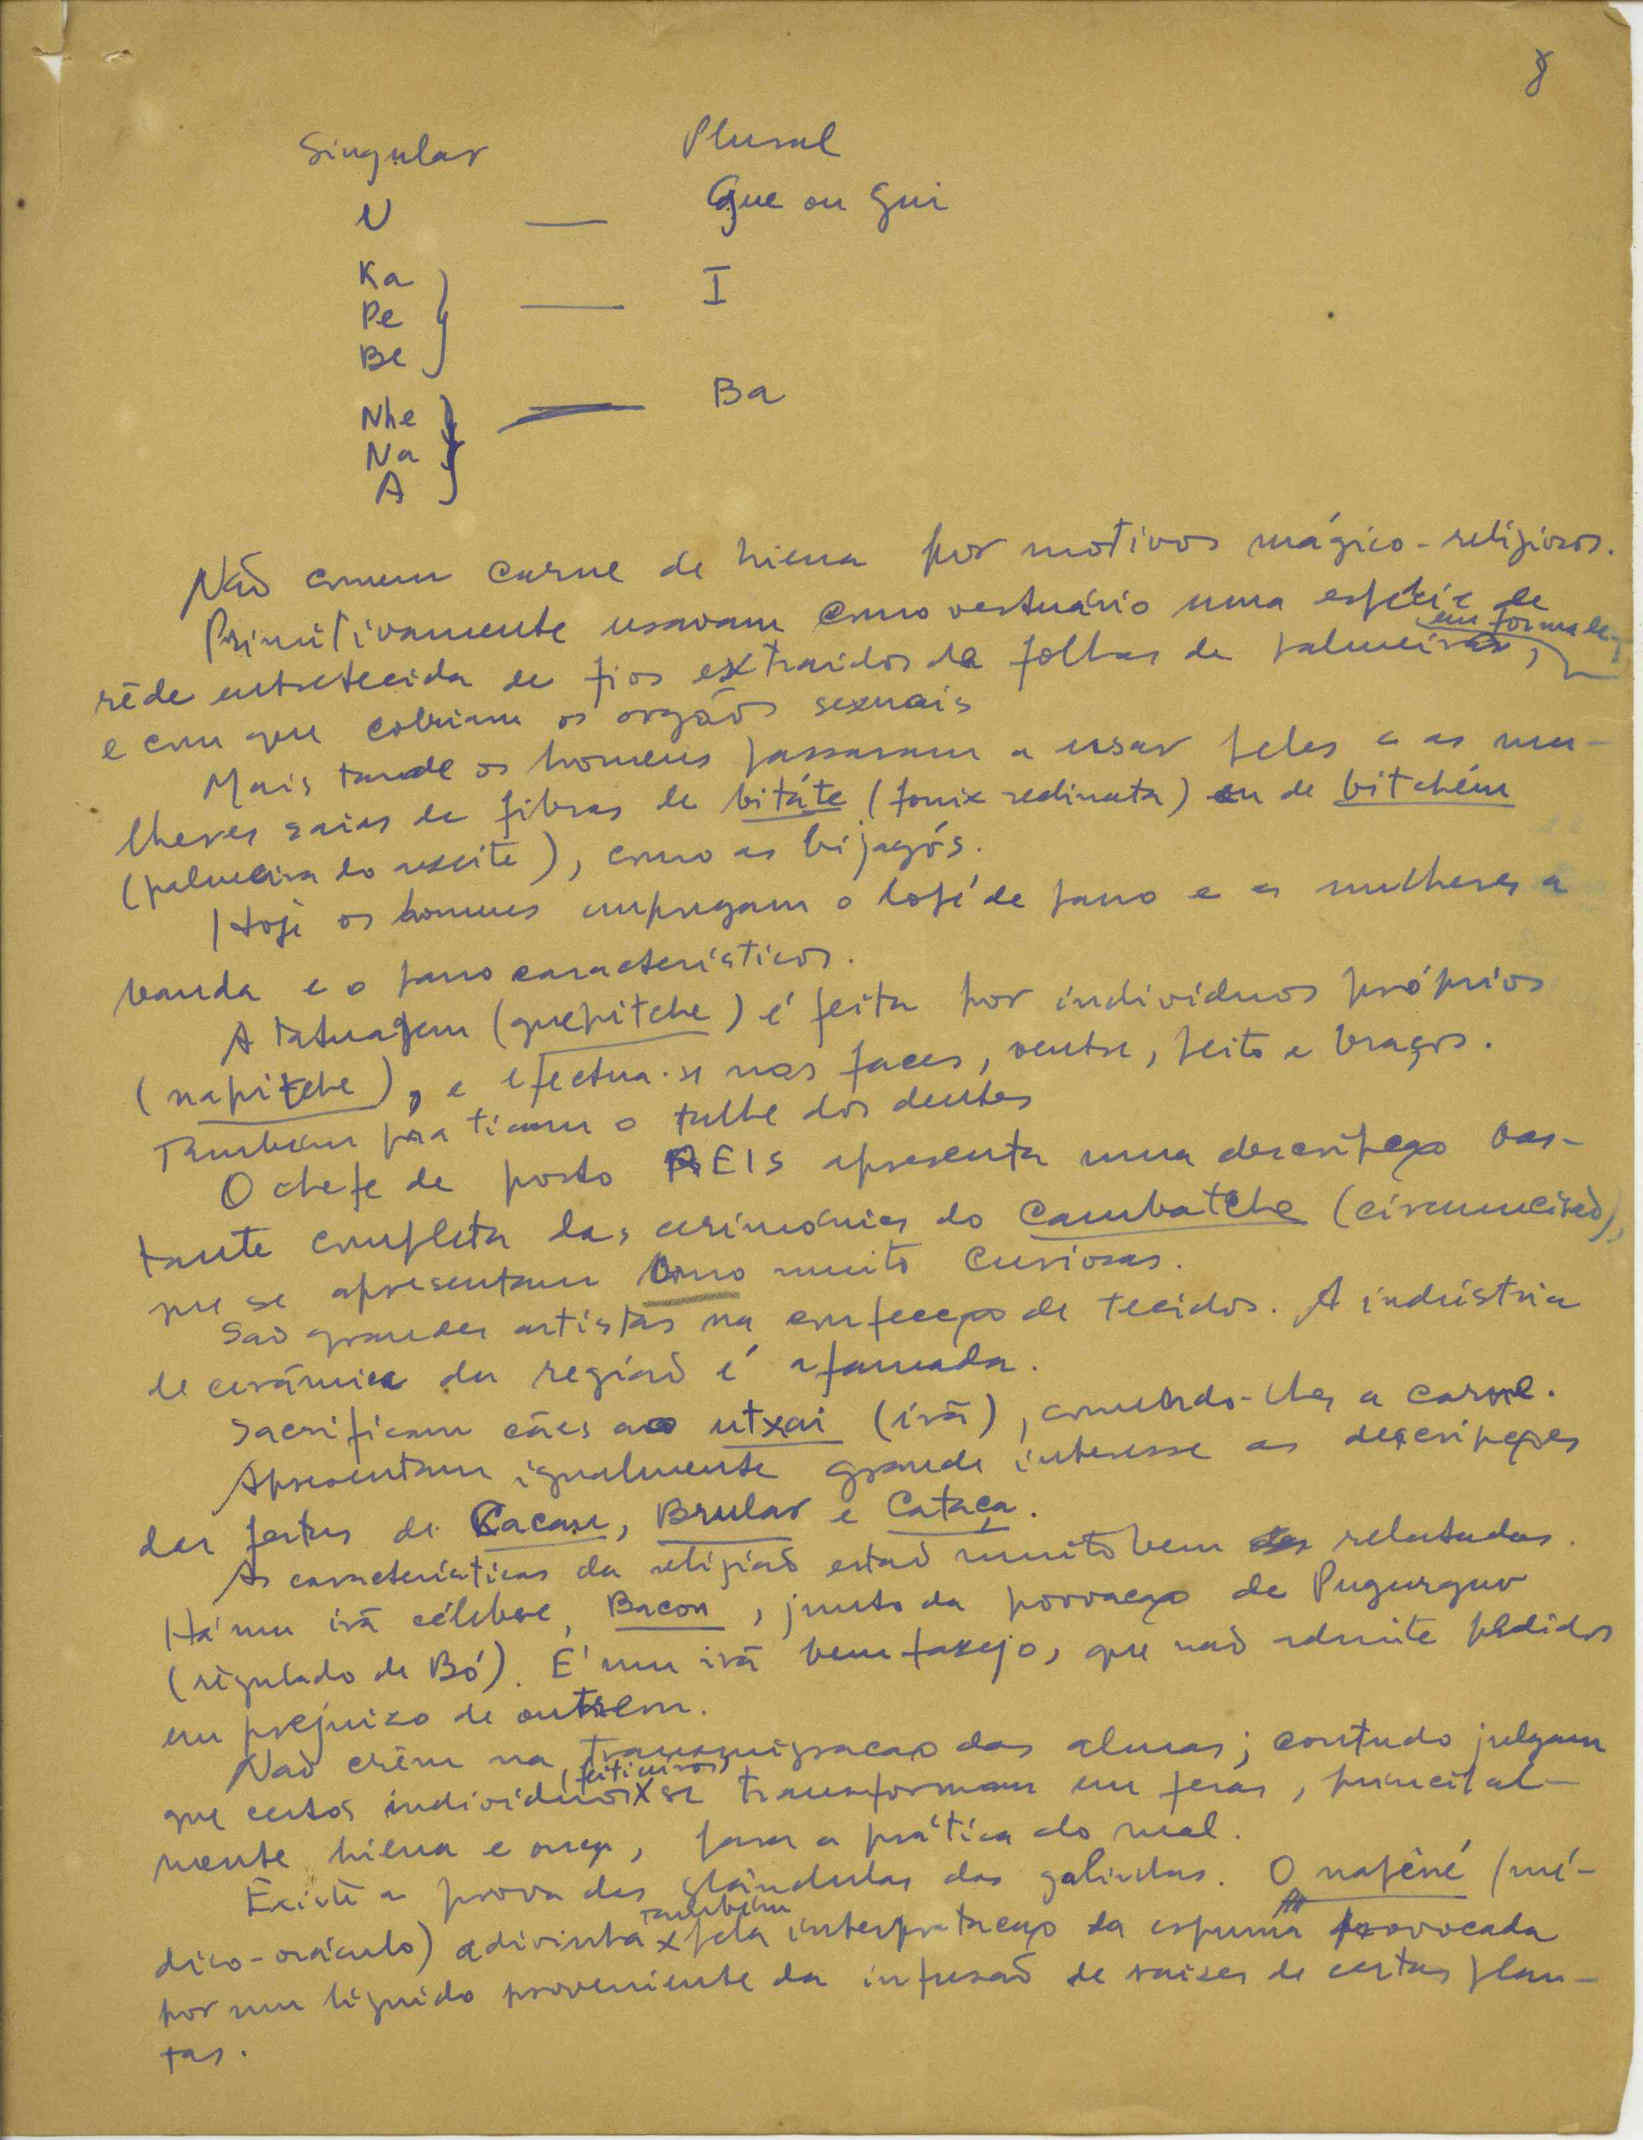 8
Singular Plural
U — Gue ou Gui
Ka
Pe — I
Be
Nhe — Ba
Na
A
Não comem carne de hiena por motivos mágico-religiosos.
Primitivamente usavam como vestuário uma espécie de
rêde entretecida de fios extraidos de folhas de palmeiras, em forma de
e com que cobriam os orgãos sexuais
Mais tarde os homens passaram a usar peles e as mu-
lheres saias de fibras de bitáte (fonix reclinata) ou de bitchém
(palmeira do azeite), como as bijagós.
Hoje os homens empregam o lopé de pano e as mulheres a
banda e o pano caracteristicos.
A tatuagem (quepitche) é feita por individuos próprios
(napitche), e efectua-se nas faces, ventre, peito e braços.
Tambem praticam o talhe dos dentes
O chefe de posto REIS apresenta uma descripção bas-
tante completa das cerimónias do Cambatche (circumcisão),
que se apresentam como muito curiosas.
São grandes artistas na confecção de tecidos. A indústria
de cerâmica da região é afamada.
Sacrificam cães ao utxai (irã), comendo-lhes a carne.
Apresentam igualmente grande interesse as descripções
das festas de Cacau, Brular e Cataça.
As caracteristicas da religião estão muito bem relatadas.
Há um irã célebre, Bacon, junto da povoação de Pugurgur
(regulado de Bó). É um irã bemfazejo, que não admite pedidos
em prejuizo de outrem.
Não crêm na transmigracao das almas; contudo julgam
que certos individuos (feiticeiros) se transformam em feras, principal-
mente hiena e onça, para a prática do mal.
Existe a prova das glândulas das galinhas. O napéné (mé-
dico-oráculo) adivinha também pela interpretação da espuma provocada
por um liquido proveniente da infusão de raizes de certas plan-
tas.